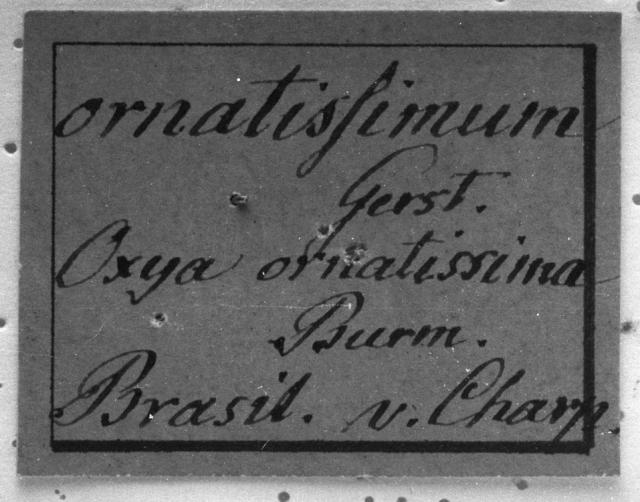 ornatiſsimum
Gerst.
Oxya ornatissima
Burm.
Brasil. v. Charp.